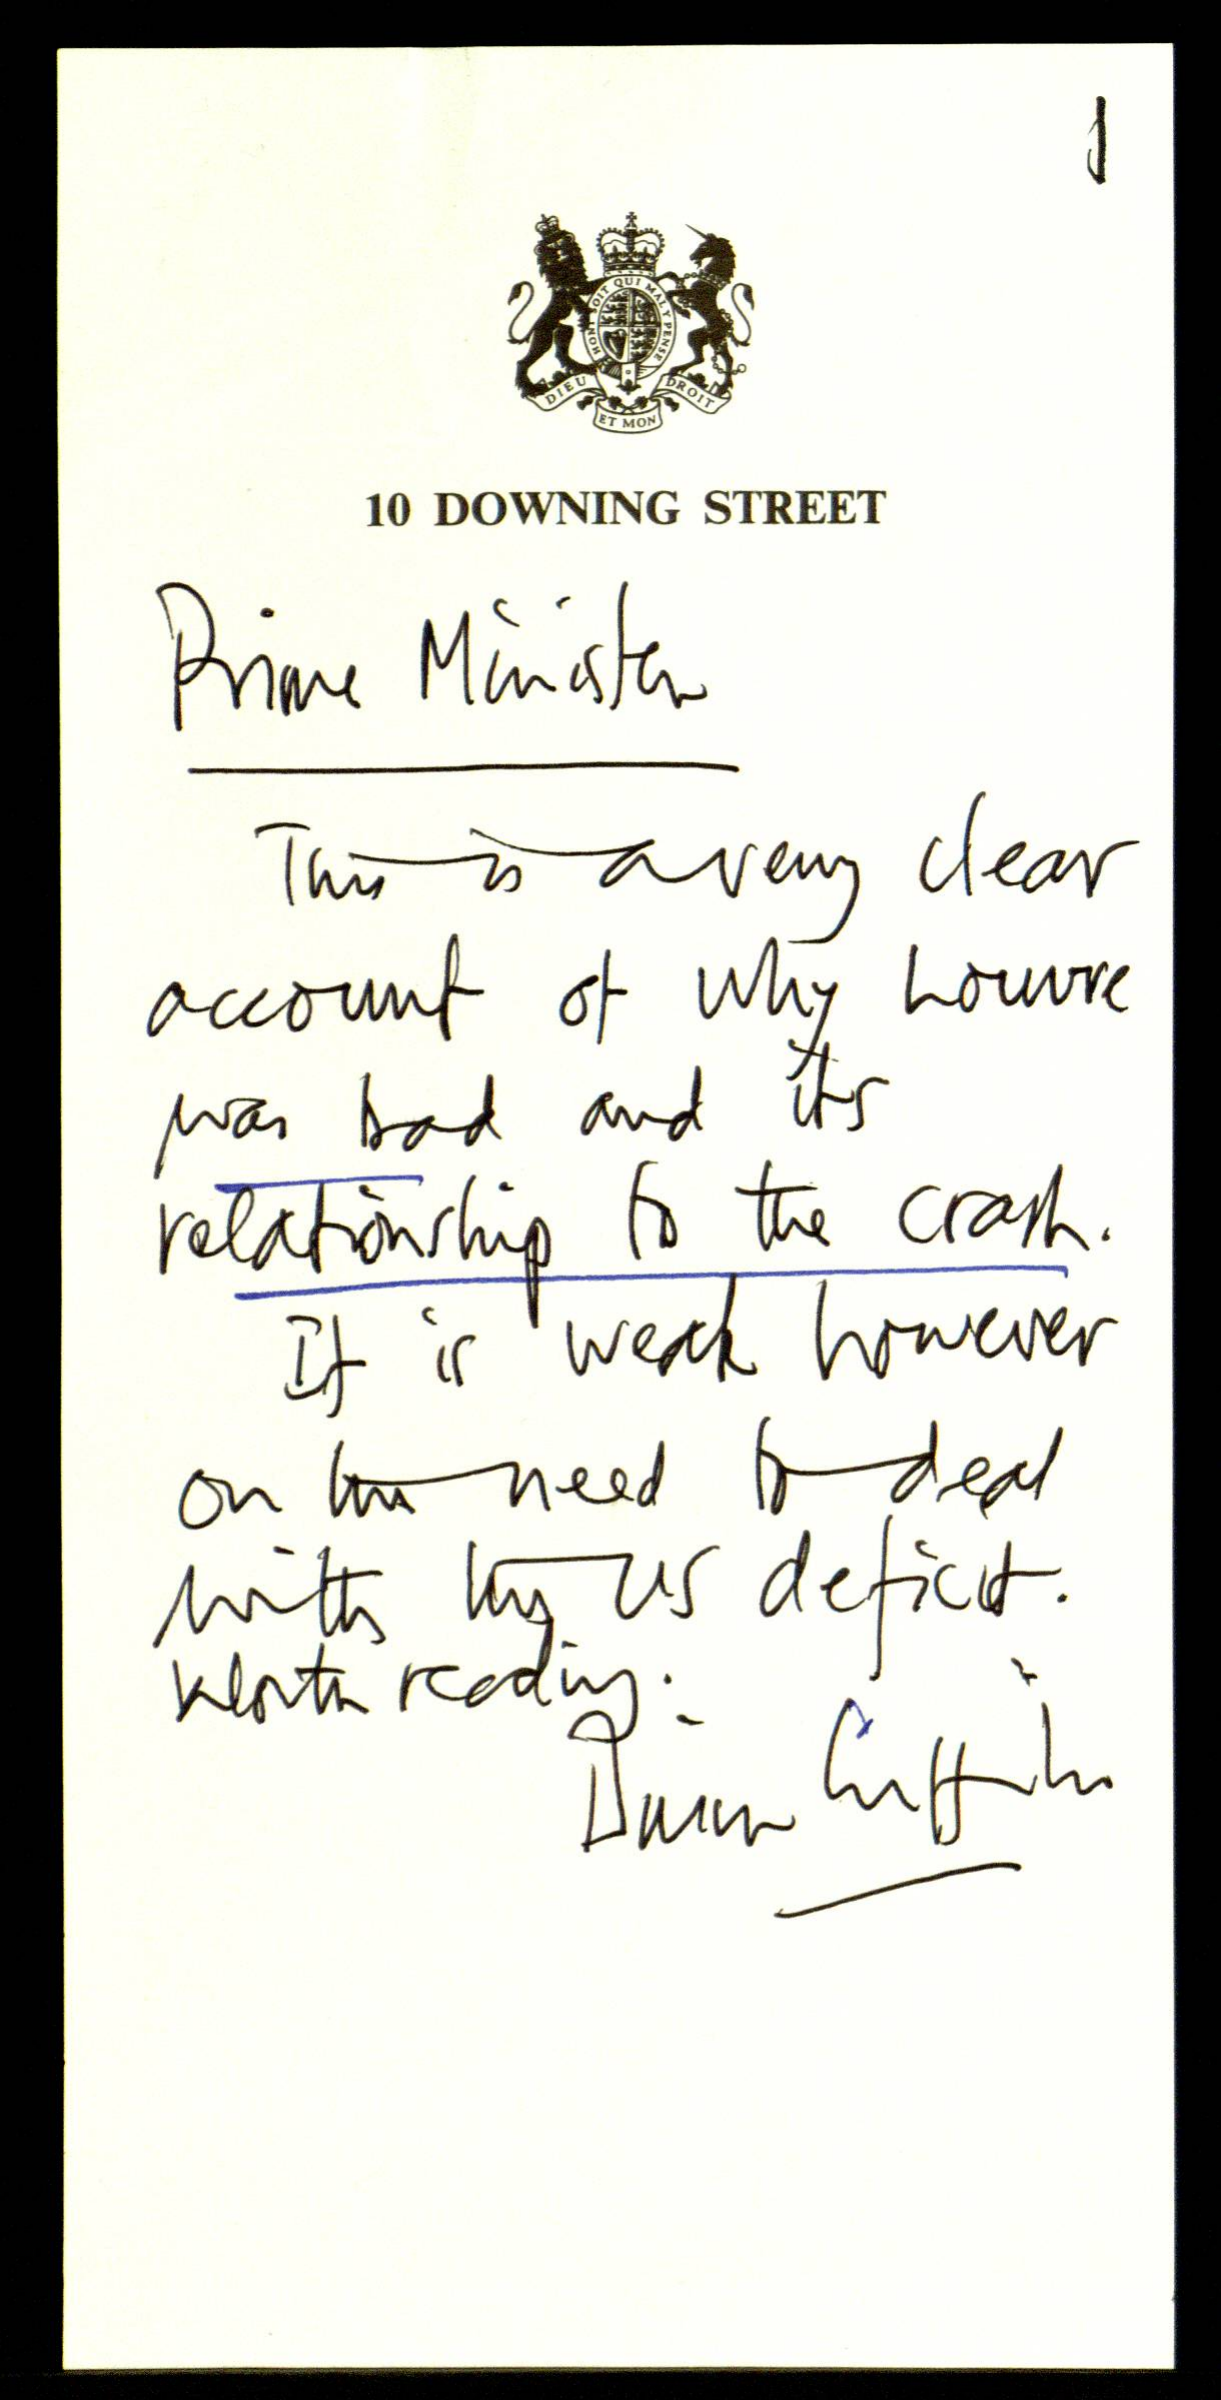 HONI SOIT QUI MAL Y PENSE
DIEU ET MON DROIT
10 DOWNING STREET
Prime Minister
This is a very clear
account of why Louvre
was bad and its
relationship to the crash.
It is weak however
on the need to deal
with the US deficit.
Worth reading.
Brian Griffiths